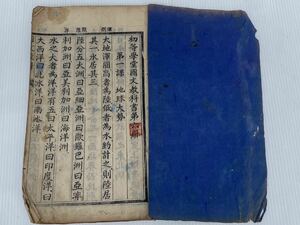 初等學堂國文教科書第
第一課 地球大勢
大地渾圓高者為陸低者為水約計之則陸居
其一水居其三
陸分五大洲曰亞細亞洲曰歐羅巴洲曰亞非
利加洲曰亞美利加洲曰海洋洲
水之大者為洋洋有五曰太平洋曰印度洋曰
大西洋曰北冰洋曰南冰洋